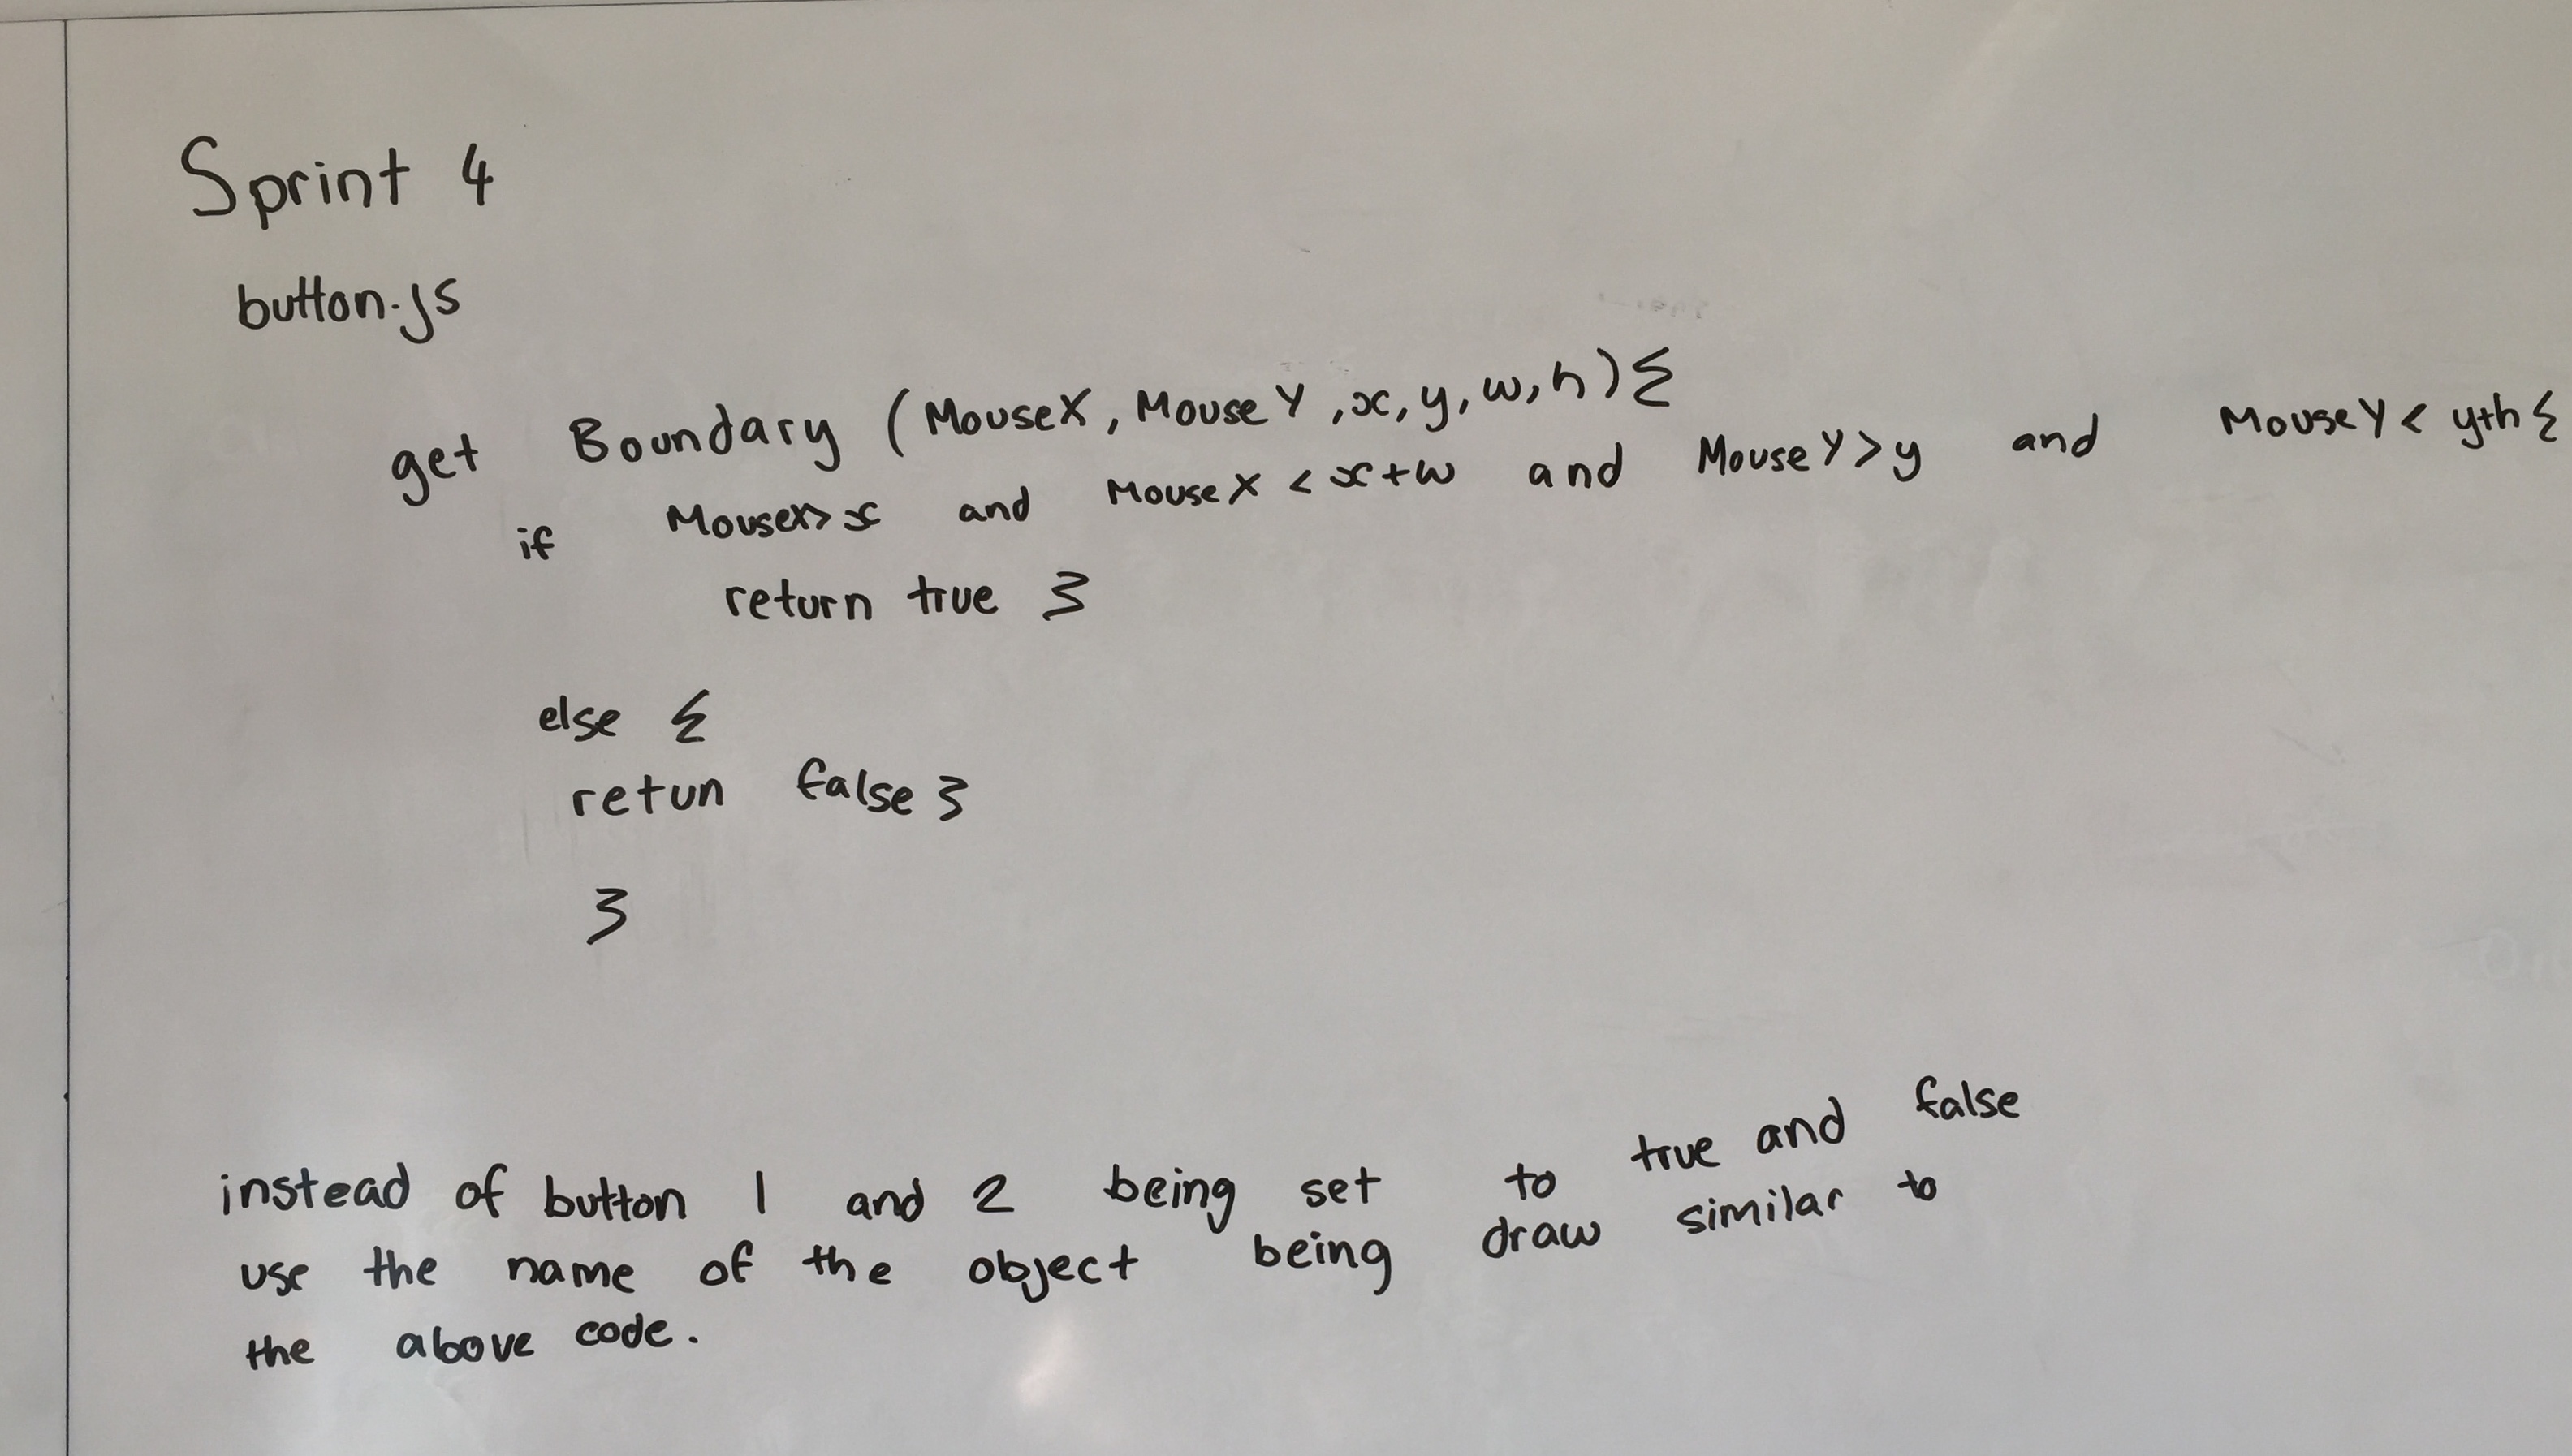 Sprint 4
button.js
get Boundary (MouseX, MouseY, x, y, w, h) {
if MouseX > x and MouseX < x+w and MouseY > y and MouseY < y+h {
return true }
else {
retun false }
}
instead of button 1 and 2 being set to true and false
use the name of the object being draw similar to
the above code.